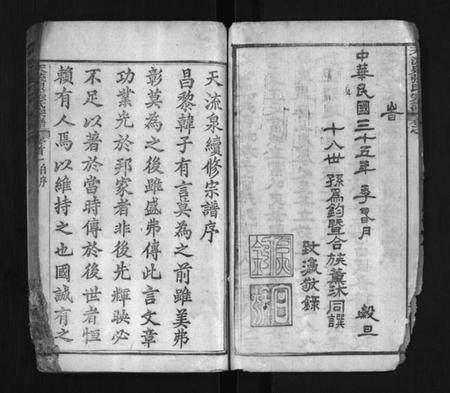 旹
中華民國三十五年 季春月 穀旦
十八世 孫為鈞暨合族薰沐同譔
敬錄
天流泉續修宗譜序
昌黎韓子有言莫為之前雖美弗
彰莫為之後雖盛弗傳此言文章
功業光於邦家者非後先輝映必
不足以著於當時傳於後世者恒
賴有人焉以維持之也國誠有之